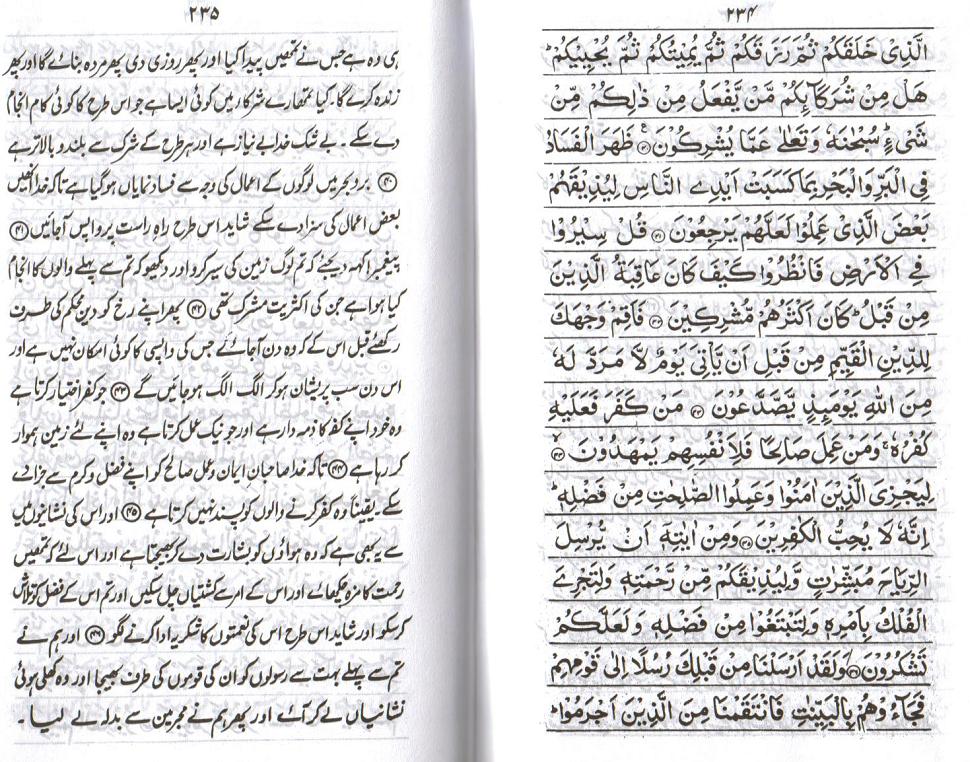 ۲۳۴
الَّذِیْ خَلَقَكُمْ ثُمَّ رَزَقَكُمْ ثُمَّ یُمِیْتُكُمْ ثُمَّ یُحْیِیْكُمْ ؕ
هَلْ مِنْ شُرَكَآىِٕكُمْ مَّنْ یَّفْعَلُ مِنْ ذٰلِكُمْ مِّنْ
شَیْءٍ ؕ سُبْحٰنَهٗ وَ تَعٰلٰی عَمَّا یُشْرِكُوْنَ ﴿۴۰﴾ ظَهَرَ الْفَسَادُ
فِی الْبَرِّ وَالْبَحْرِ بِمَا كَسَبَتْ اَیْدِی النَّاسِ لِیُذِیْقَهُمْ
بَعْضَ الَّذِیْ عَمِلُوْا لَعَلَّهُمْ یَرْجِعُوْنَ ﴿۴۱﴾ قُلْ سِیْرُوْا
فِی الْاَرْضِ فَانْظُرُوْا كَیْفَ كَانَ عَاقِبَةُ الَّذِیْنَ
مِنْ قَبْلُ ؕ كَانَ اَكْثَرُهُمْ مُّشْرِكِیْنَ ﴿۴۲﴾ فَاَقِمْ وَجْهَكَ
لِلدِّیْنِ الْقَیِّمِ مِنْ قَبْلِ اَنْ یَّاْتِیَ یَوْمٌ لَّا مَرَدَّ لَهٗ
مِنَ اللّٰهِ یَوْمَىِٕذٍ یَّصَّدَّعُوْنَ ﴿۴۳﴾ مَنْ كَفَرَ فَعَلَیْهِ
كُفْرُهٗ ۚ وَمَنْ عَمِلَ صَالِحًا فَلِاَنْفُسِهِمْ یَمْهَدُوْنَ ﴿۴۴﴾
لِیَجْزِیَ الَّذِیْنَ اٰمَنُوْا وَعَمِلُوا الصّٰلِحٰتِ مِنْ فَضْلِهٖ ؕ
اِنَّهٗ لَا یُحِبُّ الْكٰفِرِیْنَ ﴿۴۵﴾ وَمِنْ اٰیٰتِهٖۤ اَنْ یُّرْسِلَ
الرِّیَاحَ مُبَشِّرٰتٍ وَّلِیُذِیْقَكُمْ مِّنْ رَّحْمَتِهٖ وَلِتَجْرِیَ
الْفُلْكُ بِاَمْرِهٖ وَلِتَبْتَغُوْا مِنْ فَضْلِهٖ وَلَعَلَّكُمْ
تَشْكُرُوْنَ ﴿۴۶﴾ وَلَقَدْ اَرْسَلْنَا مِنْ قَبْلِكَ رُسُلًا اِلٰی قَوْمِهِمْ
فَجَآءُوْهُمْ بِالْبَیِّنٰتِ فَانْتَقَمْنَا مِنَ الَّذِیْنَ اَجْرَمُوْا ؕ
۲۳۵
ہی وہ ہے جس نے تمھیں پیدا کیا اور پھر روزی دی پھر مردہ بنائے گا اور پھر
زندہ کرے گا۔ کیا تمھارے شرکار میں کوئی ایسا ہے جو اس طرح کا کوئی کام انجام
دے سکے۔ بے شک خدا بے نیاز ہے اور ہر طرح کے شرک سے بلند و بالاتر ہے
﴿۴۰﴾ بر و بحر میں لوگوں کے اعمال کی وجہ سے فساد نمایاں ہو گیا ہے تاکہ خدا انھیں
بعض اعمال کی سزا دے سکے شاید اس طرح راہ راست پر واپس آجائیں ﴿۴۱﴾
پیغمبر! کہہ دیجئے کہ تم لوگ زمین کی سیر کرو اور دیکھو کہ تم سے پہلے والوں کا انجام
کیا ہوا ہے جن کی اکثریت مشرک تھی ﴿۴۲﴾ پھر اپنے رخ کو دین محکم کی طرف
رکھئے قبل اس کے کہ وہ دن آجائے جس کی واپسی کا کوئی امکان نہیں ہے اور
اس دن سب پریشان ہو کر الگ الگ ہو جائیں گے ﴿۴۳﴾ جو کفر اختیار کرتا ہے
وہ خود اپنے کفر کا ذمہ دار ہے اور جو نیک عمل کرتا ہے وہ اپنے لئے زمین ہموار
کر رہا ہے ﴿۴۴﴾ تاکہ خدا صاحبان ایمان و عمل صالح کو اپنے فضل و کرم سے جزا دے
سکے۔ یقیناً وہ کفر کرنے والوں کو پسند نہیں کرتا ہے ﴿۴۵﴾ اور اس کی نشانیوں میں
سے یہ بھی ہے کہ وہ ہواؤں کو بشارت دے کر بھیجتا ہے اور اس لئے کہ تمھیں
رحمت کا مزہ چکھائے اور اس کے امر سے کشتیاں چل سکیں اور تم اس کے فضل کو تلاش
کر سکو اور شاید اس طرح اس کی نعمتوں کا شکریہ ادا کرنے لگو ﴿۴۶﴾ اور ہم نے
تم سے پہلے بہت سے رسولوں کو ان کی قوموں کی طرف بھیجا اور وہ کھلی ہوئی
نشانیاں لے کر آئے اور پھر ہم نے مجرمین سے بدلہ لے لیا۔